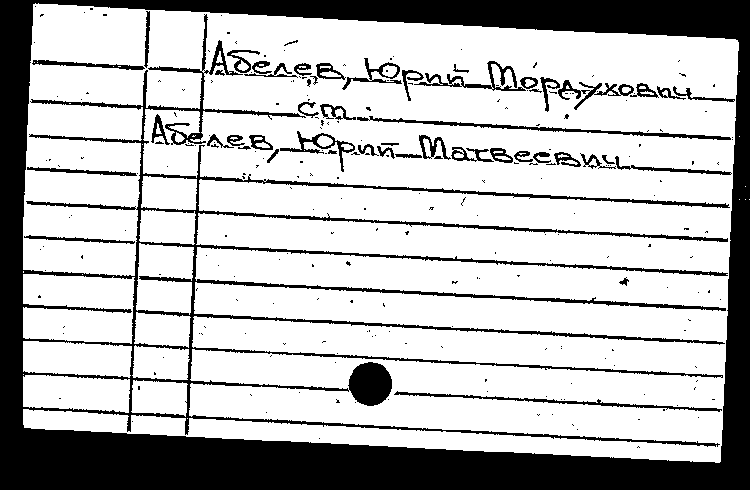 Абелев, Юрий Мордухович
ст.
Абелев, Юрий Матвеевич